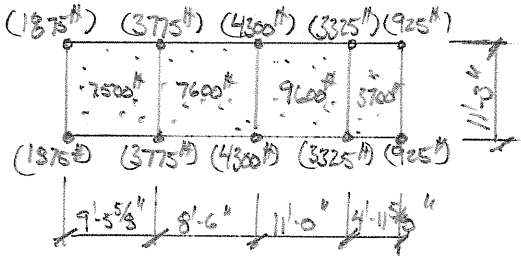 (1875#) (3775#) (4300#) (3325#) (925#)
7500# 7600# 9600# 3700#
11'-3"
(1875#) (3775#) (4300#) (3325#) (925#)
9'-5 5/8" 8'-6" 11'-0" 4'-11 5/8"